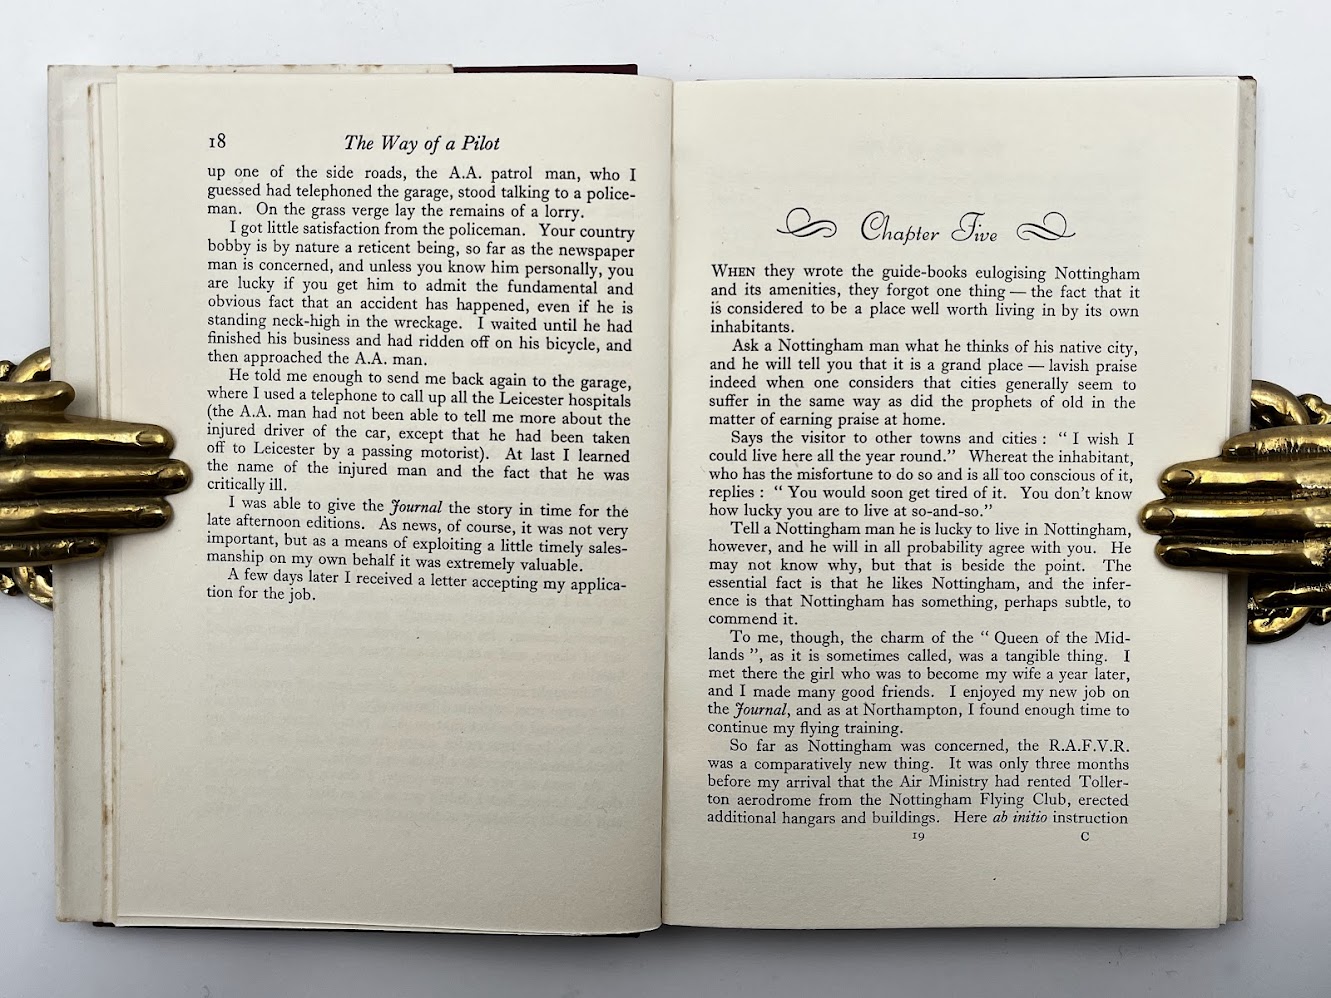 18 The Way of a Pilot
up one of the side roads, the A.A. patrol man, who I
guessed had telephoned the garage, stood talking to a police-
man. On the grass verge lay the remains of a lorry.
I got little satisfaction from the policeman. Your country
bobby is by nature a reticent being, so far as the newspaper
man is concerned, and unless you know him personally, you
are lucky if you get him to admit the fundamental and
obvious fact that an accident has happened, even if he is
standing neck-high in the wreckage. I waited until he had
finished his business and had ridden off on his bicycle, and
then approached the A.A. man.
He told me enough to send me back again to the garage,
where I used a telephone to call up all the Leicester hospitals
(the A.A. man had not been able to tell me more about the
injured driver of the car, except that he had been taken
off to Leicester by a passing motorist). At last I learned
the name of the injured man and the fact that he was
critically ill.
I was able to give the Journal the story in time for the
late afternoon editions. As news, of course, it was not very
important, but as a means of exploiting a little timely sales-
manship on my own behalf it was extremely valuable.
A few days later I received a letter accepting my applica-
tion for the job.
Chapter Five
WHEN they wrote the guide-books eulogising Nottingham
and its amenities, they forgot one thing — the fact that it
is considered to be a place well worth living in by its own
inhabitants.
Ask a Nottingham man what he thinks of his native city,
and he will tell you that it is a grand place — lavish praise
indeed when one considers that cities generally seem to
suffer in the same way as did the prophets of old in the
matter of earning praise at home.
Says the visitor to other towns and cities : “ I wish I
could live here all the year round.” Whereat the inhabitant,
who has the misfortune to do so and is all too conscious of it,
replies : “ You would soon get tired of it. You don't know
how lucky you are to live at so-and-so.”
Tell a Nottingham man he is lucky to live in Nottingham,
however, and he will in all probability agree with you. He
may not know why, but that is beside the point. The
essential fact is that he likes Nottingham, and the infer-
ence is that Nottingham has something, perhaps subtle, to
commend it.
To me, though, the charm of the “ Queen of the Mid-
lands ”, as it is sometimes called, was a tangible thing. I
met there the girl who was to become my wife a year later,
and I made many good friends. I enjoyed my new job on
the Journal, and as at Northampton, I found enough time to
continue my flying training.
So far as Nottingham was concerned, the R.A.F.V.R.
was a comparatively new thing. It was only three months
before my arrival that the Air Ministry had rented Toller-
ton aerodrome from the Nottingham Flying Club, erected
additional hangars and buildings. Here ab initio instruction
19 C